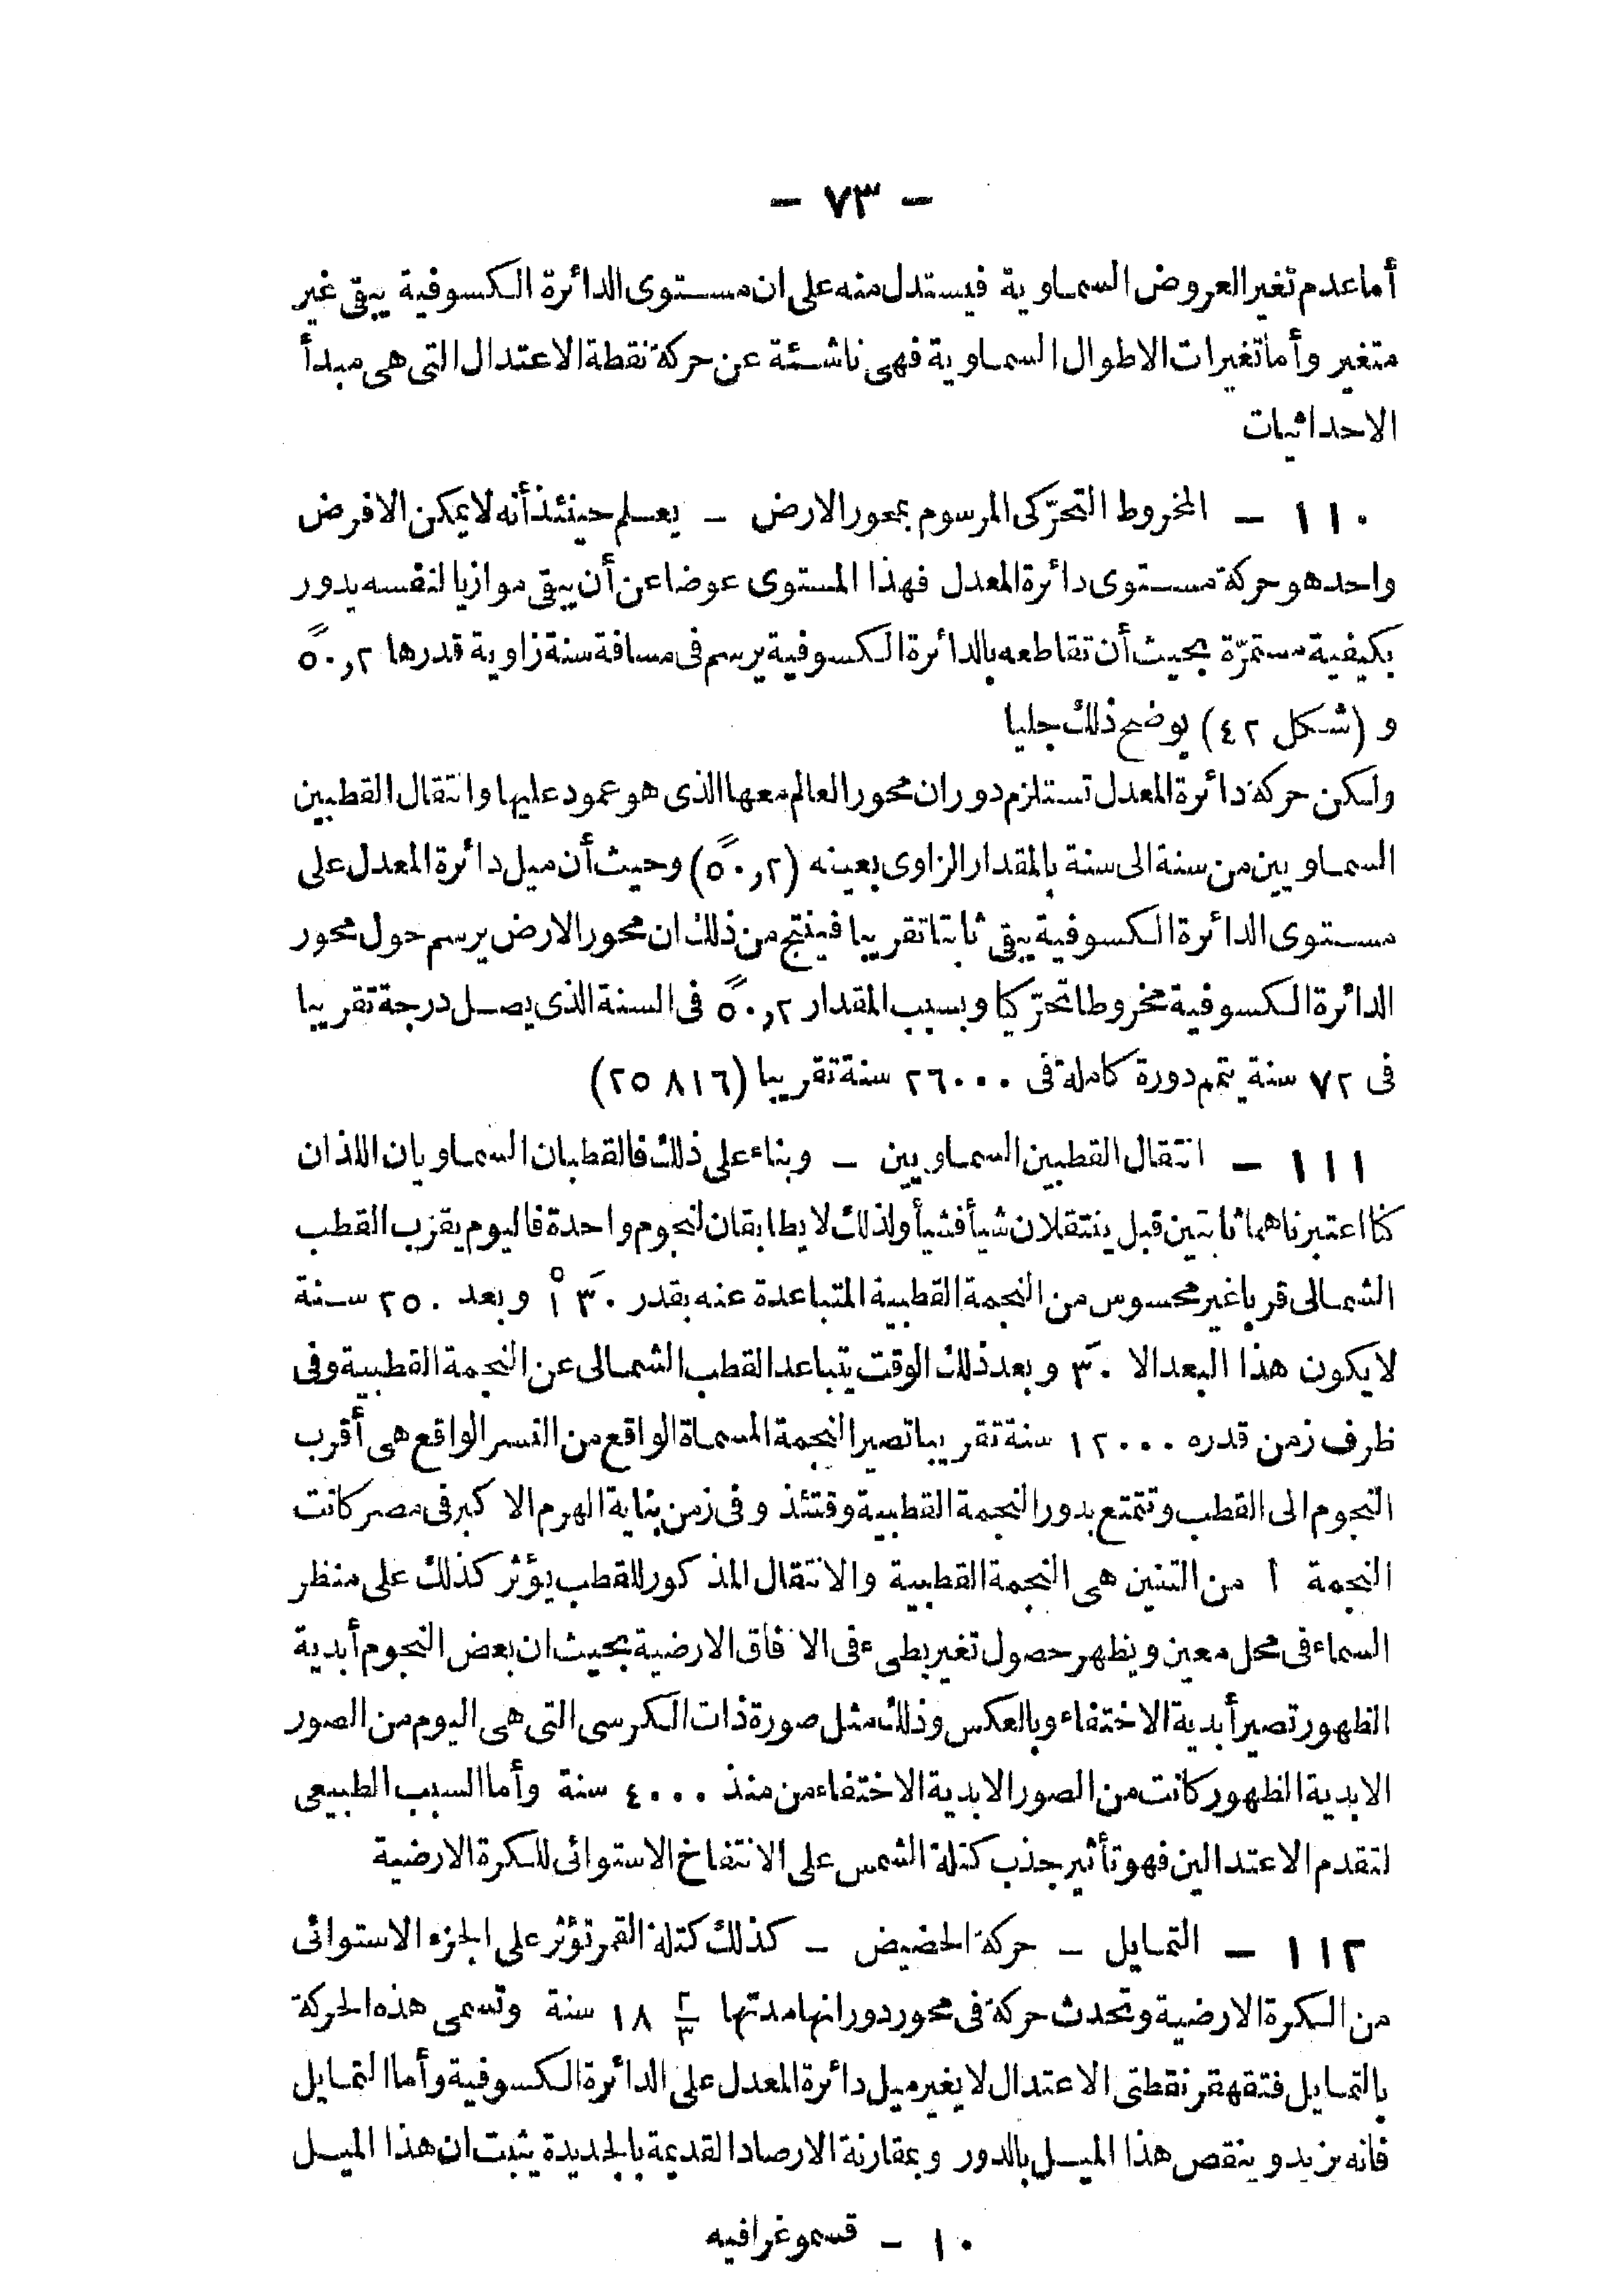 - ٧٣ -
أما عدم تغير العروض السماوية فيستدل منه على ان مستوى الدائرة الكسوفية يبقى غير
متغير وأما تغيرات الاطوال السماوية فهى ناشئة عن حركة نقطة الاعتدال التى هى مبدأ
الاحداثيات
١١٠ - المخروط التحرّكى المرسوم بمحور الارض - يعلم حينئذ أنه لا يمكن الا فرض
واحد هو حركة مستوى دائرة المعدل فهذا المستوى عوضا عن أن يبقى موازيا لنفسه يدور
بكيفية مستمرّة بحيث أن تقاطعه بالدائرة الكسوفية يرسم فى مسافة سنة زاوية قدرها ٥٠٫٢″
و (شكل ٤٢) يوضح ذلك جليا
ولكن حركة دائرة المعدل تستلزم دوران محور العالم معها الذى هو عمود عليها وانتقال القطبين
السماويين من سنة الى سنة بالمقدار الزاوى بعينه (٥٠٫٢″) وحيث أن ميل دائرة المعدل على
مستوى الدائرة الكسوفية يبقى ثابتا تقريبا فينتج من ذلك ان محور الارض يرسم حول محور
الدائرة الكسوفية مخروطا تحرّكيا وبسبب المقدار ٥٠٫٢″ فى السنة الذى يصل درجة تقريبا
فى ٧٢ سنة يتمم دورة كاملة فى ٢٦٠٠٠ سنة تقريبا (٢٥٨١٦)
١١١ - انتقال القطبين السماويين - وبناء على ذلك فالقطبان السماويان اللذان
كنا اعتبرناهما ثابتين قبل ينتقلان شيأ فشيأ ولذلك لا يطابقان لنجوم واحدة فاليوم يقرب القطب
الشمالى قربا غير محسوس من النجمة القطبية المتباعدة عنه بقدر ٣٠′ ١° وبعد ٢٥٠ سنة
لا يكون هذا البعد الا ٣٠′ وبعد ذلك الوقت يتباعد القطب الشمالى عن النجمة القطبية وفى
ظرف زمن قدره ١٢٠٠٠ سنة تقريبا تصير النجمة المسماة الواقع من النسر الواقع هى أقرب
النجوم الى القطب وتتمتع بدور النجمة القطبية وقتئذ وفى زمن بناية الهرم الاكبر فى مصر كانت
النجمة ا من التنين هى النجمة القطبية والانتقال المذكور للقطب يؤثر كذلك على منظر
السماء فى محل معين ويظهر حصول تغير بطىء فى الآفاق الارضية بحيث ان بعض النجوم أبدية
الظهور تصير أبدية الاختفاء وبالعكس وذلك مثل صورة ذات الكرسى التى هى اليوم من الصور
الابدية الظهور كانت من الصور الابدية الاختفاء من منذ ٤٠٠٠ سنة وأما السبب الطبيعى
لتقدم الاعتدالين فهو تأثير جذب كتلة الشمس على الانتفاخ الاستوائى للكرة الارضية
١١٢ - التمايل - حركة الحضيض - كذلك كتلة القمر تؤثر على الجزء الاستوائى
من الكرة الارضية وتحدث حركة فى محور دورانها مدتها ٢/٣ ١٨ سنة وتسمى هذه الحركة
بالتمايل فتقهقر نقطتى الاعتدال لا يغير ميل دائرة المعدل على الدائرة الكسوفية وأما التمايل
فانه يزيد وينقص هذا الميل بالدور وبمقارنة الارصاد القديمة بالجديدة يثبت ان هذا الميل
١٠ - قسموغرافيه